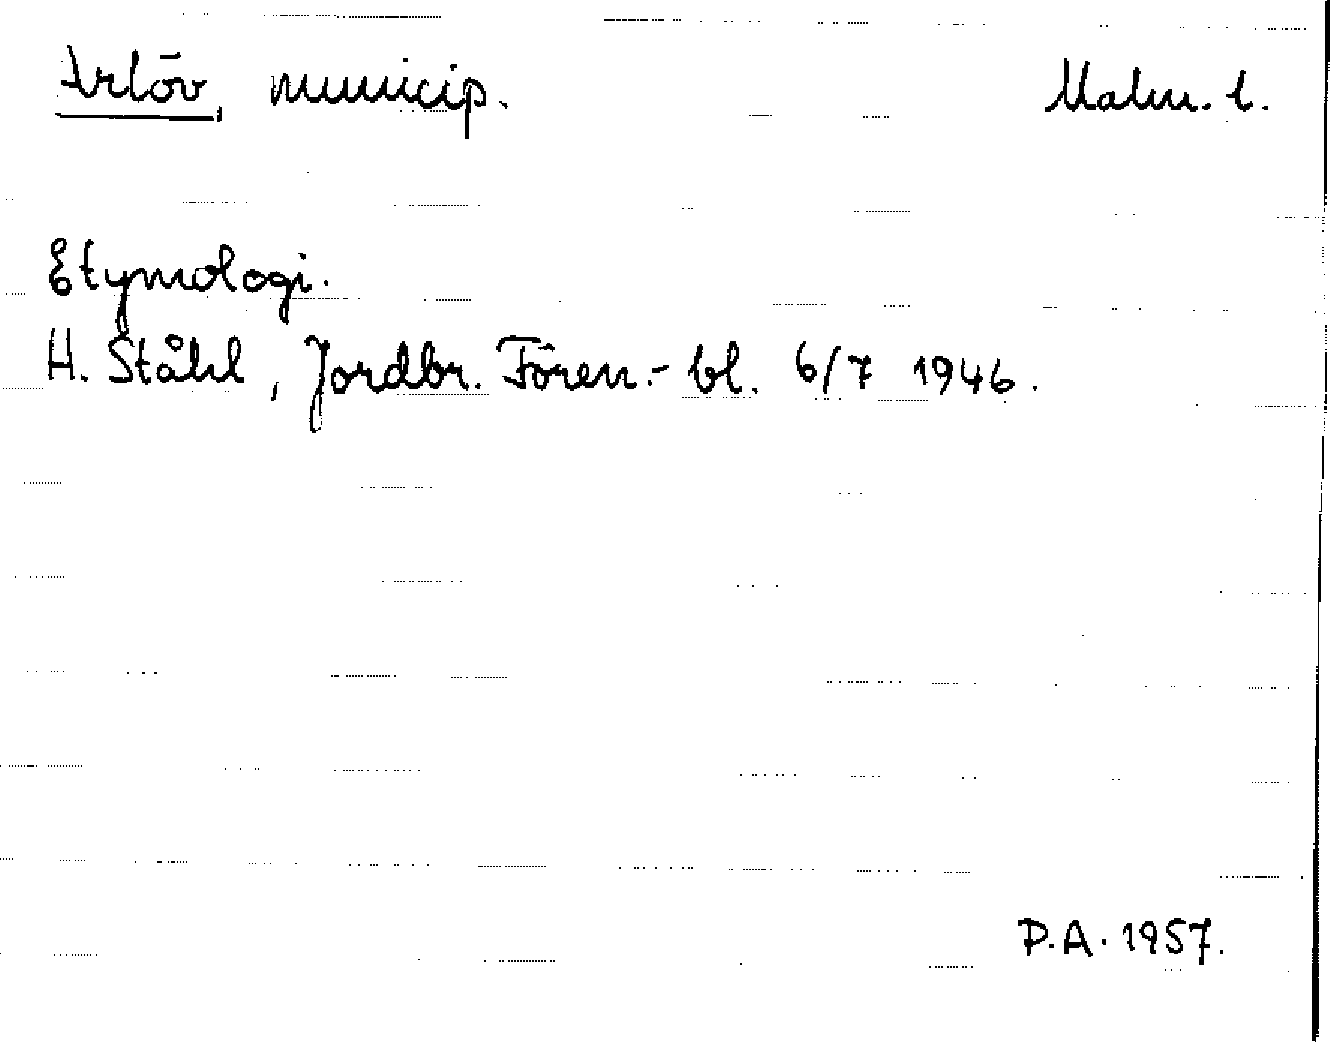 Arlöv, municip. Malm. l.
Etymologi.
H. Ståhl, Jordbr. Fören.-bl. 6/7 1946.
P.A. 1957.